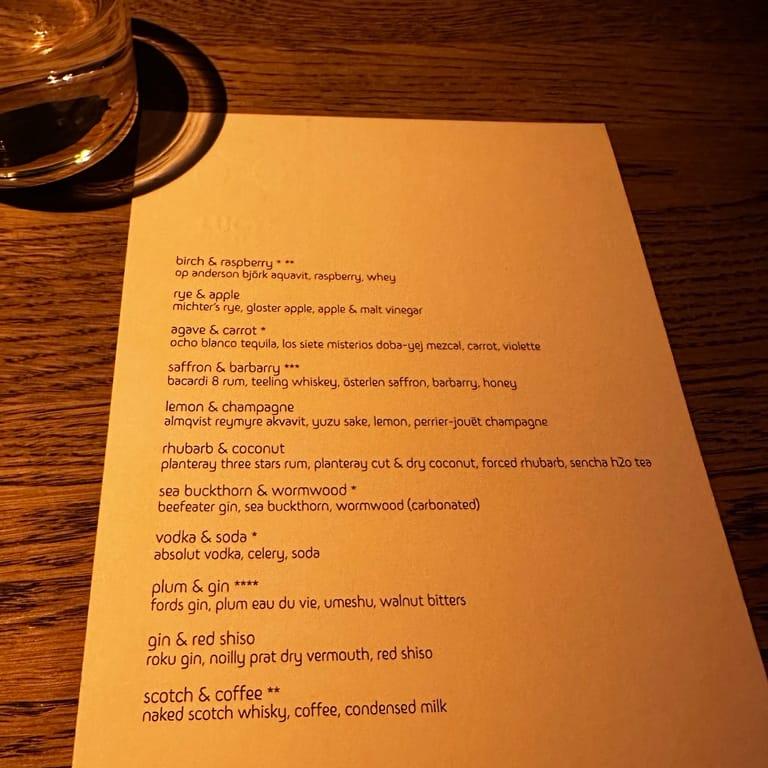 birch & raspberry * **
op anderson björk aquavit, raspberry, whey
rye & apple
michter's rye, gloster apple, apple & malt vinegar
agave & carrot *
ocho blanco tequila, los siete misterios doba-yej mezcal, carrot, violette
saffron & barbarry ***
bacardi 8 rum, teeling whiskey, österlen saffron, barbarry, honey
lemon & champagne
almqvist reymyre akvavit, yuzu sake, lemon, perrier-jouët champagne
rhubarb & coconut
planteray three stars rum, planteray cut & dry coconut, forced rhubarb, sencha h2o tea
sea buckthorn & wormwood *
beefeater gin, sea buckthorn, wormwood (carbonated)
vodka & soda *
absolut vodka, celery, soda
plum & gin ****
fords gin, plum eau du vie, umeshu, walnut bitters
gin & red shiso
roku gin, noilly prat dry vermouth, red shiso
scotch & coffee **
naked scotch whisky, coffee, condensed milk